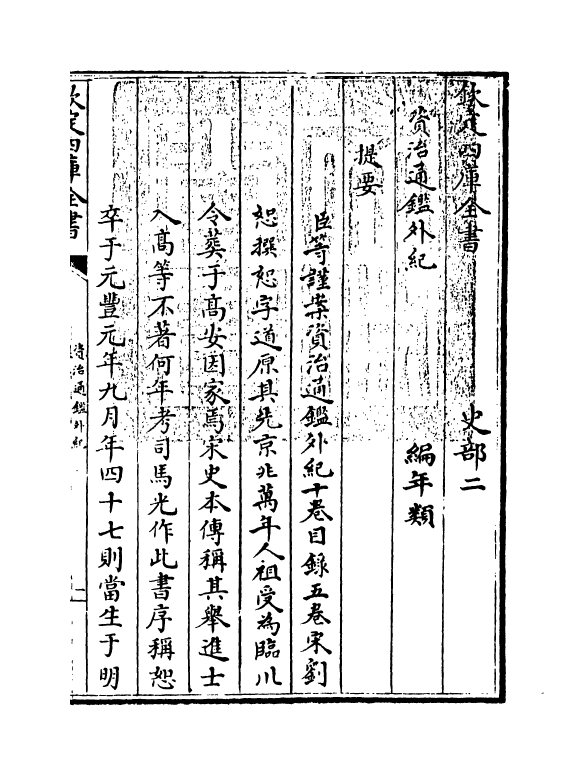 欽定四庫全書　史部二
資治通鑑外紀　編年類
提要
臣等謹案資治通鑑外紀十卷目錄五卷宋劉
恕撰恕字道原其先京兆萬年人祖受為臨川
令葬于髙安因家焉宋史本傳稱其舉進士
入髙等不著何年考司馬光作此書序稱恕
卒于元豐元年九月年四十七則當生于明
欽定四庫全書
資治通鑑外紀
一